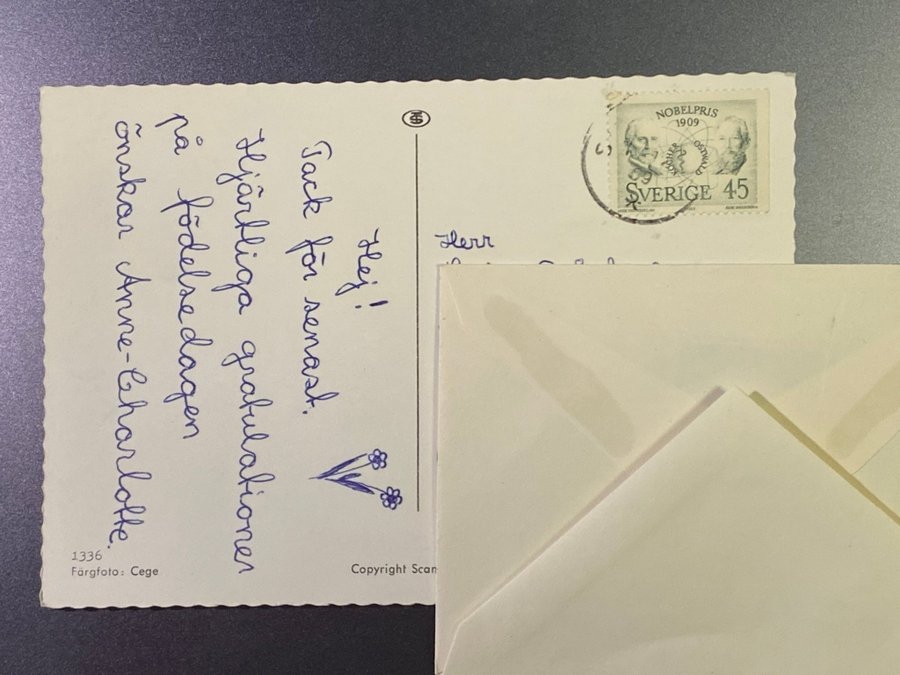 Hej!
Tack för senast.
Hjärtliga gratulationer
på födelsedagen
önskar Anne-Charlotte.
1336
Färgfoto: Cege
Copyright Scan
NOBELPRIS
1909
KOCHER
OSTWALD
SVERIGE 45
Herr